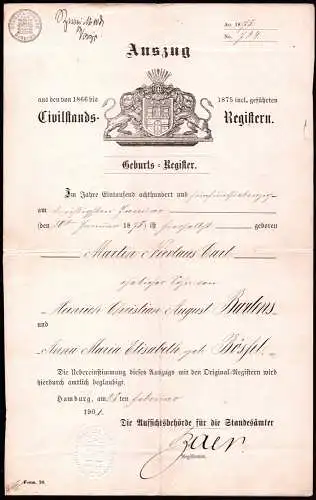 An. 1875.
No. 794.
Auszug
aus den von 1866 bis 1875 incl. geführten
Civilstands- Registern.
Geburts-Register.
Im Jahre Eintausend achthundert und fünfundsiebenzig
am dreißigsten Januar
(den 30ten Januar 1875) ist hieselbst geboren
Martin Nicolaus Carl
ehelicher Sohn von
Heinrich Christian August Bartens
und
Anna Maria Elisabeth geb.
Die Uebereinstimmung dieses Auszugs mit den Original-Registern wird
hierdurch amtlich beglaubigt.
Hamburg, am ten Februar
1901.
Die Aufsichtsbehörde für die Standesämter
Registrator.
Form. 30.